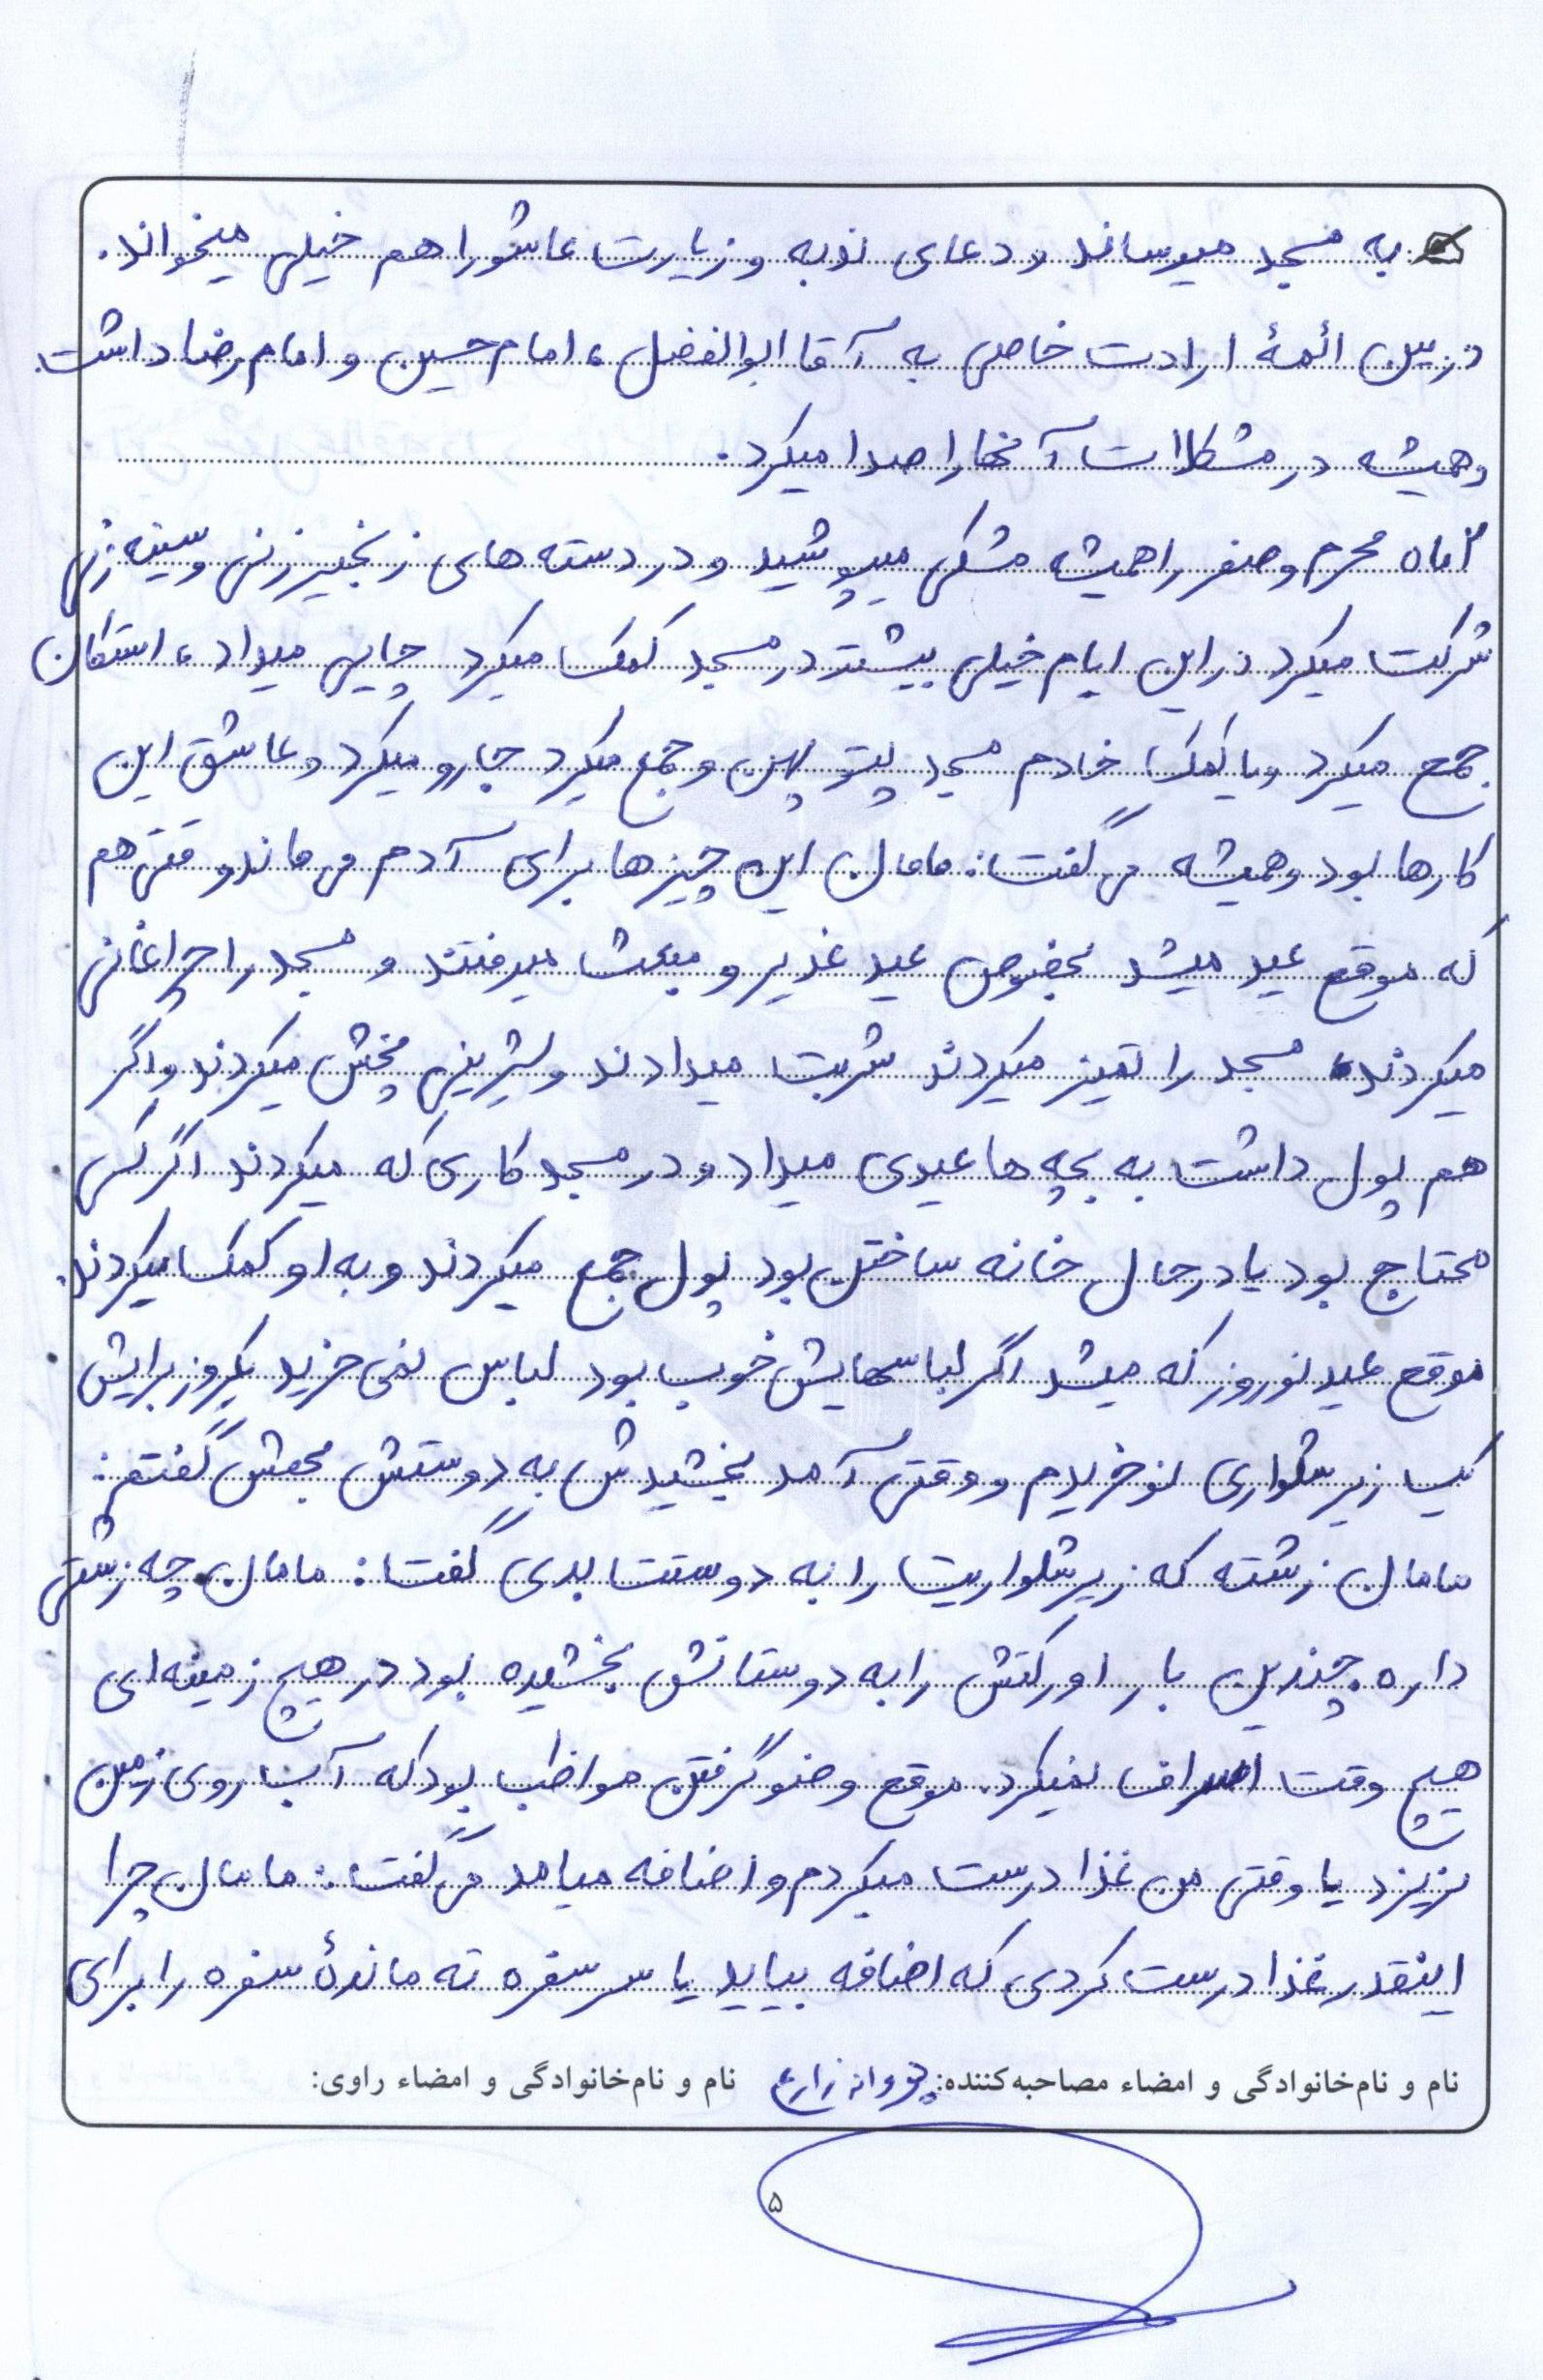 به مسجد میرساند و دعای ندبه و زیارت عاشورا هم خیلی میخواند.
در بین ائمهٔ ارادت خاصی به آقا ابوالفضل، امام حسین و امام رضا داشت
وهمیشه در مشکلات آنها را صدا میکرد.
۲ماه محرم و صفر را همیشه مشکی میپوشید و در دسته های زنجیرزنی و سینه زنی
شرکت میکرد در این ایام خیلی بیشتر در مسجد کمک میکرد چایی میداد، استکان
جمع میکرد و با کمک خادم مسجد پتو پهن و جمع میکرد جارو میکرد و عاشق این
کارها بود وهمیشه می گفت: مامان این چیزها برای آدم می ماند و وقتی هم
که موقع عید میشد بخصوص عید غدیر و مبعث میرفتند و مسجد را چراغانی
میکردند، مسجد را تمیز میکردند شربت میدادند و شیرینی پخش میکردند و اگر
هم پول داشت به بچه ها عیدی میداد و در مسجد کاری که میکردند اگر کسی
محتاج بود یا در حال خانه ساختن بود پول جمع میکردند و به او کمک میکردند.
موقع عید نوروز که میشد اگر لباسهایش خوب بود لباس نمی خرید یکروز برایش
یک زیر شلواری نو خریدم و وقتی آمد بخشیدش به دوستش بهش گفتم:
مامان زشته که زیرشلواریت را به دوستت بدی گفت: مامان چه زشتی
داره چندین بار اورکتش را به دوستانش بخشیده بود در هیچ زمینه ای
هیچ وقت اسراف نمیکرد. موقع وضو گرفتن مواظب بود که آب روی زمین
نریزد یا وقتی من غذا درست میکردم و اضافه میامد می گفت: مامان چرا
اینقدر غذا درست کردی که اضافه بیاید یا سر سفره ته ماندهٔ سفره را برای
نام و نام‌خانوادگی و امضاء مصاحبه‌کننده: پروانه زارع نام و نام‌خانوادگی و امضاء راوی:
۵